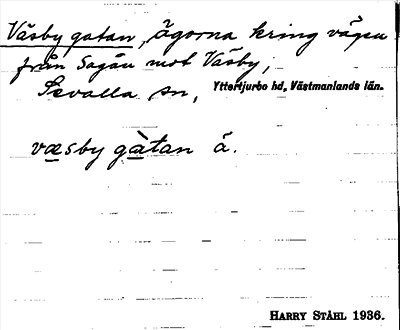 Väsby gatan, ägorna kring vägen
från Sagån mot Väsby,
Sevalla sn, Yttertjurbo hd, Västmanlands län.
væsby gàtan ä.
HARRY STÅHL 1936.